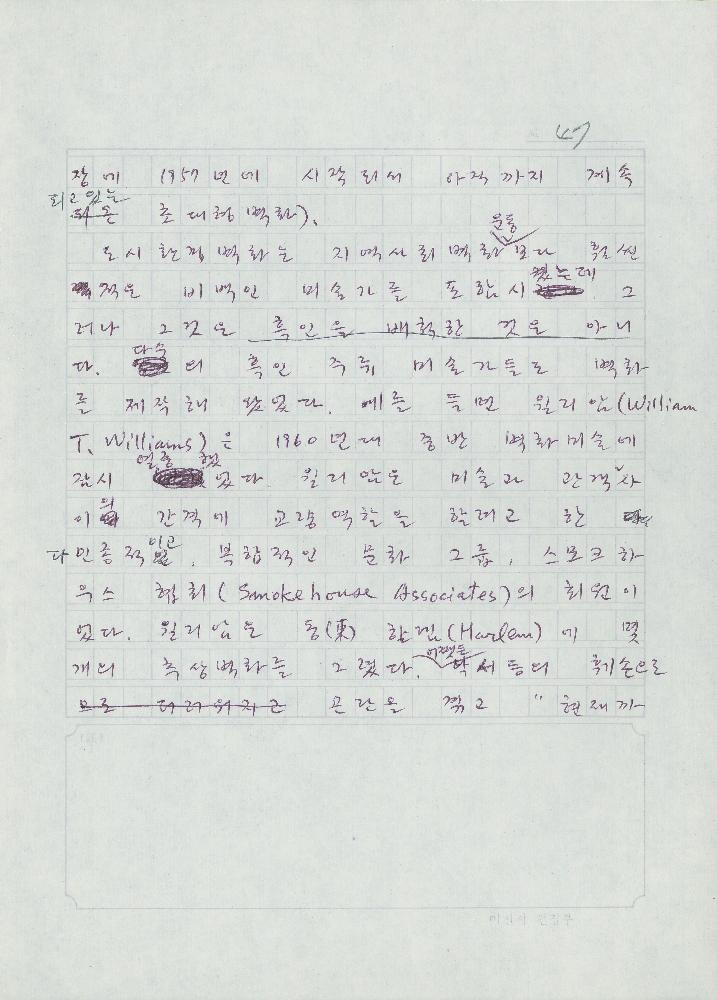 47
장에 1957년에 시작되서 아직까지 계속
되고있는
초대형벽화).
운동
도시환경벽화는 지역사회벽화보다 훨씬
했는데
적은 비백인 미술가를 포함시 그
러나 그것은 흑인을 배척한 것은 아니
다수
다. 의 흑인 주류 미술가들도 벽화
를 제작해 왔었다. 예를 들면 윌리암(William
T. Williams)은 1960년대 중반 벽화미술에
열중 했
잠시 었다. 윌리암은 미술과 관객사
의
이 간격에 교량역할을 할려고 한
이고
다인종적, 복합적인 문화 그룹, 스모크하
우스 협회(Smokehouse Associates)의 회원이
었다. 윌리암은 동(東) 할렘(Harlem)에 몇
개의 추상벽화를 그렸다. 낙서등의 훼손으로
으로 더러워지는 곤란을 겪고 "현재까